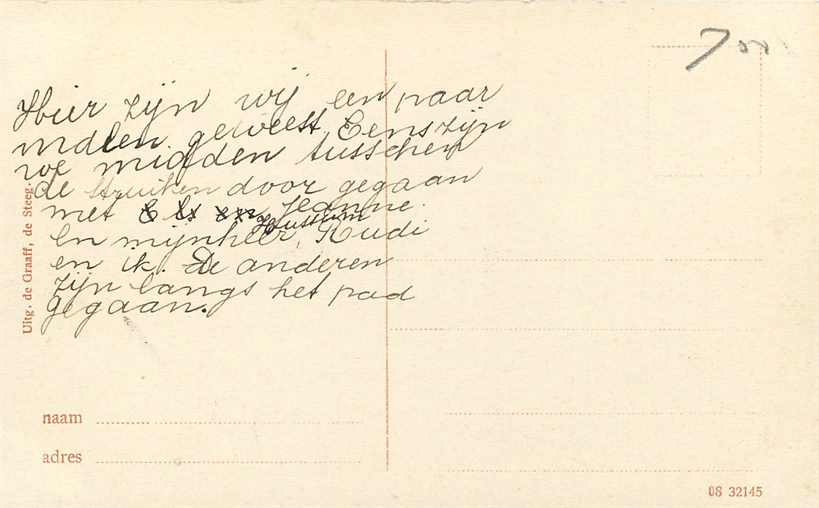 Hier zijn wij een paar
malen geweest. Eens zijn
we midden tusschen
de struiken door gegaan
met Jeanne.
En mijnheer Hussum, Rudi
en ik. De anderen
zijn langs het pad
gegaan.
Uitg. de Graaff, de Steeg.
naam
adres
08 32145